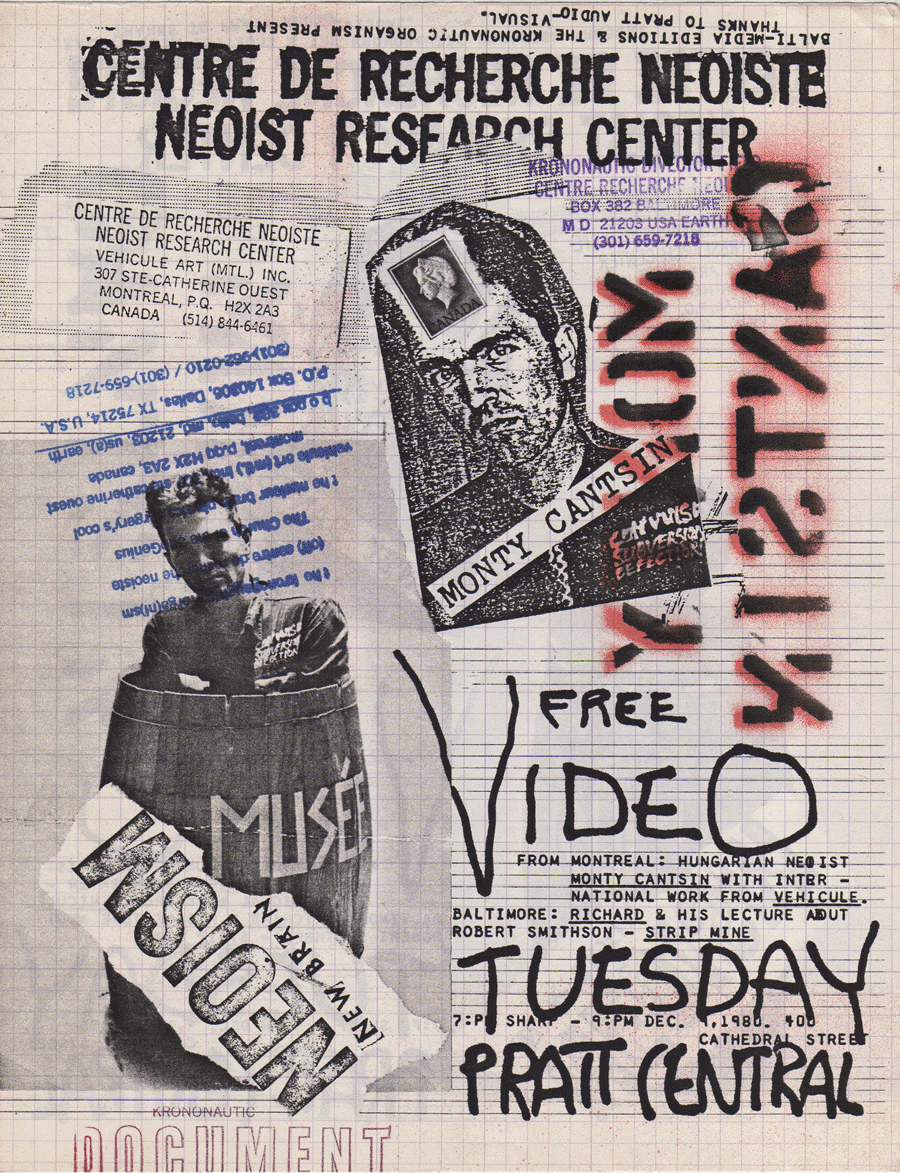 BALTI-MEDIA EDITIONS & THE KRONONAUTIC ORGANISM PRESENT
THANKS TO PRATT AUDIO-VISUAL.
CENTRE DE RECHERCHE NEOISTE
NEOIST RESEARCH CENTER
KRONONAUTIC
CENTRE RECHERCHE
BOX 382 BALTIMORE
MD 21203 USA EARTH
(301) 659-7218
CENTRE DE RECHERCHE NEOISTE
NEOIST RESEARCH CENTER
VEHICULE ART (MTL.) INC.
307 STE-CATHERINE OUEST
MONTREAL, P.Q. H2X 2A3
CANADA (514) 844-6461
CANADA
MONTY CANTSIN
COMMUNIST
SUBVERSION
DEFECTION
(301)-962-0210 / (301)-659-7218
P.O. Box 140306, Dallas, TX 75214, U.S.A.
p o box 382, balto, md, 21203, us(a), earth
montreal, p.qq H2X 2A3, canada
vehicule art (mtl.) inc. catherine ouest
t he nuclear brain surgery's cool
The Church of the Genius
(off) centre de the neoiste
MUSÉE
NEOISM
(NEW BRAIN
FREE
VIDEO
FROM MONTREAL: HUNGARIAN NEOIST
MONTY CANTSIN WITH INTER -
NATIONAL WORK FROM VEHICULE.
BALTIMORE: RICHARD & HIS LECTURE ABOUT
ROBERT SMITHSON - STRIP MINE
TUESDAY
7:PM SHARP - 9:PM DEC. 9,1980. 400
CATHEDRAL STREET
PRATT CENTRAL
KRONONAUTIC
DOCUMENT